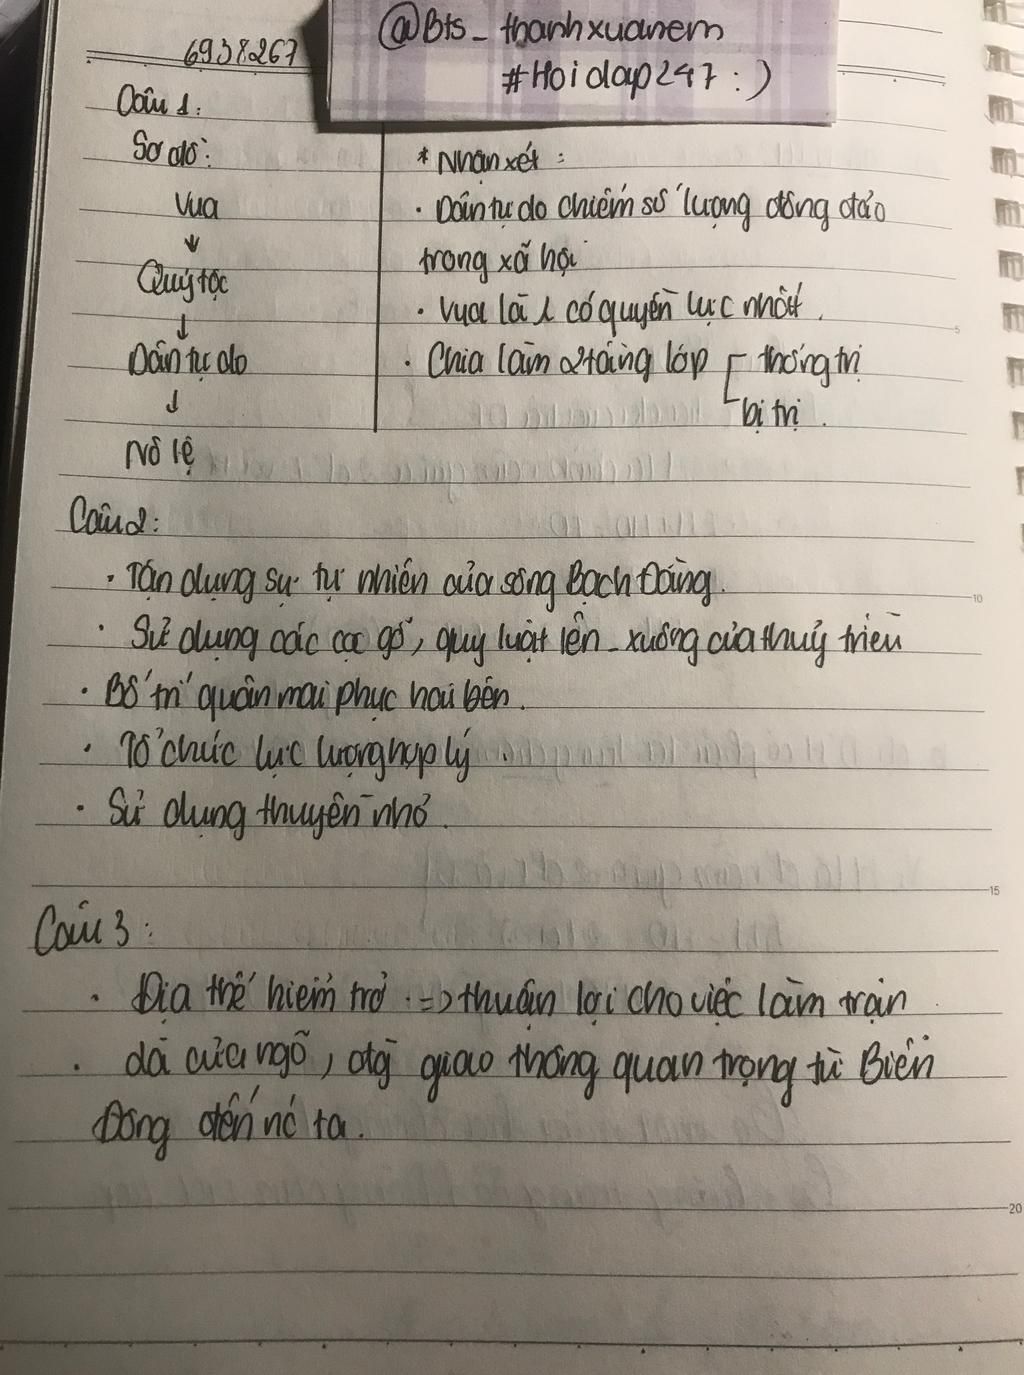 6938267
@Bts_thanhxuanem
#Hoidap247 :)
Câu 1:
Sơ đồ:
Vua
↓
Quý tộc
↓
Dân tự do
↓
Nô lệ
* Nhận xét :
· Dân tự do chiếm số lượng đông đảo
trong xã hội
· Vua là 1 có quyền lực nhất.
· Chia làm 2 tầng lớp thống trị
bị trị.
Câu 2:
· Tận dụng sự tự nhiên của sông Bạch Đằng.
· Sử dụng các cọc gỗ, quy luật lên - xuống của thuỷ triều
· Bố trí quân mai phục hai bên.
· Tổ chức lực lượng hợp lý.
· Sử dụng thuyền nhỏ.
Câu 3:
· Địa thế hiểm trở => thuận lợi cho việc làm trận.
· là cửa ngõ, đg giao thông quan trọng từ Biển
Đông đến nc ta.
5
10
15
20